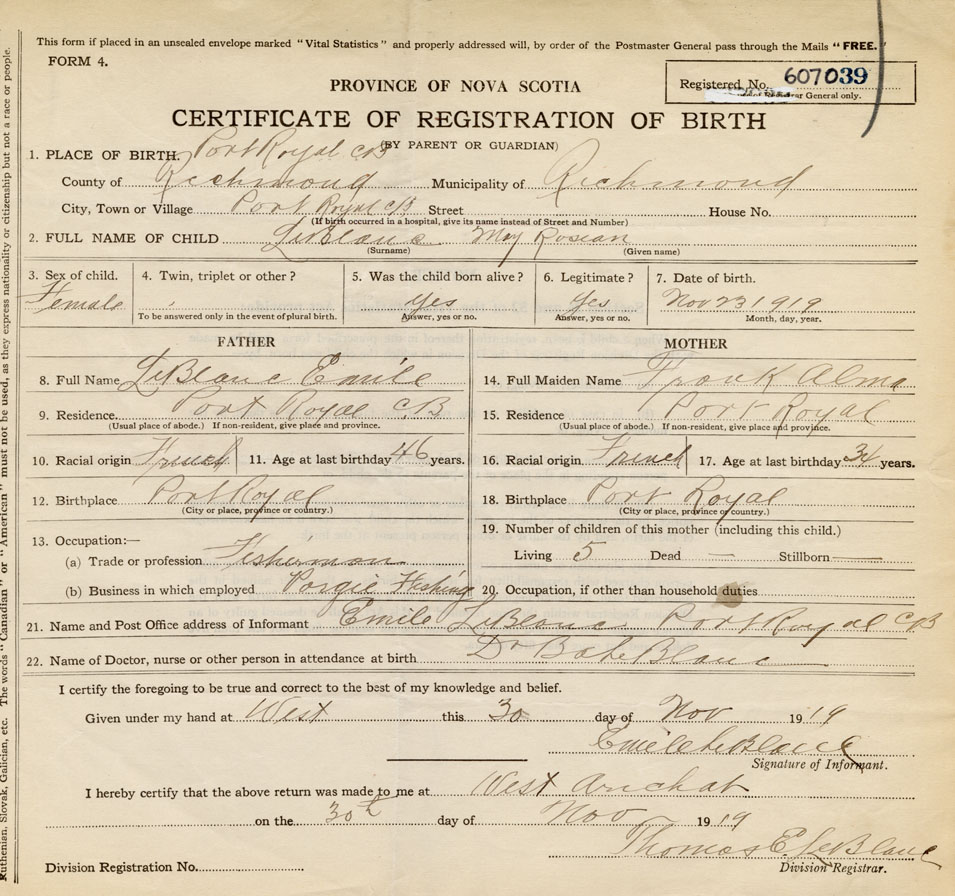 This form if placed in an unsealed envelope marked "Vital Statistics" and properly addressed will, by order of the Postmaster General pass through the Mails "FREE."
FORM 4.
PROVINCE OF NOVA SCOTIA
Registered No. 607039
rar General only.
CERTIFICATE OF REGISTRATION OF BIRTH
(BY PARENT OR GUARDIAN)
1. PLACE OF BIRTH. Port Royal CB
County of Richmond Municipality of Richmond
City, Town or Village Port Royal CB Street House No.
(If birth occurred in a hospital, give its name instead of Street and Number)
2. FULL NAME OF CHILD LeBlanc May Rosean
(Surname) (Given name)
3. Sex of child. 4. Twin, triplet or other? 5. Was the child born alive? 6. Legitimate? 7. Date of birth.
Female Yes Yes Nov 23 1919
To be answered only in the event of plural birth. Answer, yes or no. Answer, yes or no. Month, day, year.
FATHER MOTHER
8. Full Name LeBlanc Emile 14. Full Maiden Name Alma
9. Residence Port Royal CB 15. Residence Port Royal
(Usual place of abode.) If non-resident, give place and province. (Usual place of abode.) If non-resident, give place and province.
10. Racial origin French 11. Age at last birthday 46 years. 16. Racial origin French 17. Age at last birthday 34 years.
12. Birthplace Port Royal 18. Birthplace Port Royal
(City or place, province or country.) (City or place, province or country.)
13. Occupation:— 19. Number of children of this mother (including this child.)
(a) Trade or profession Fisherman Living 5 Dead — Stillborn —
(b) Business in which employed Fishing 20. Occupation, if other than household duties
21. Name and Post Office address of Informant Emile LeBlanc Port Royal CB
22. Name of Doctor, nurse or other person in attendance at birth Dr Blanc
I certify the foregoing to be true and correct to the best of my knowledge and belief.
Given under my hand at West this 30 day of Nov 1919
Emile LeBlanc
Signature of Informant.
I hereby certify that the above return was made to me at West Arichat
on the 30th day of Nov 1919
Thomas E. LeBlanc
Division Registration No. Division Registrar.
Ruthenian, Slovak, Galician, etc. The words "Canadian" or "American" must not be used, as they express nationality or citizenship but not a race or people.